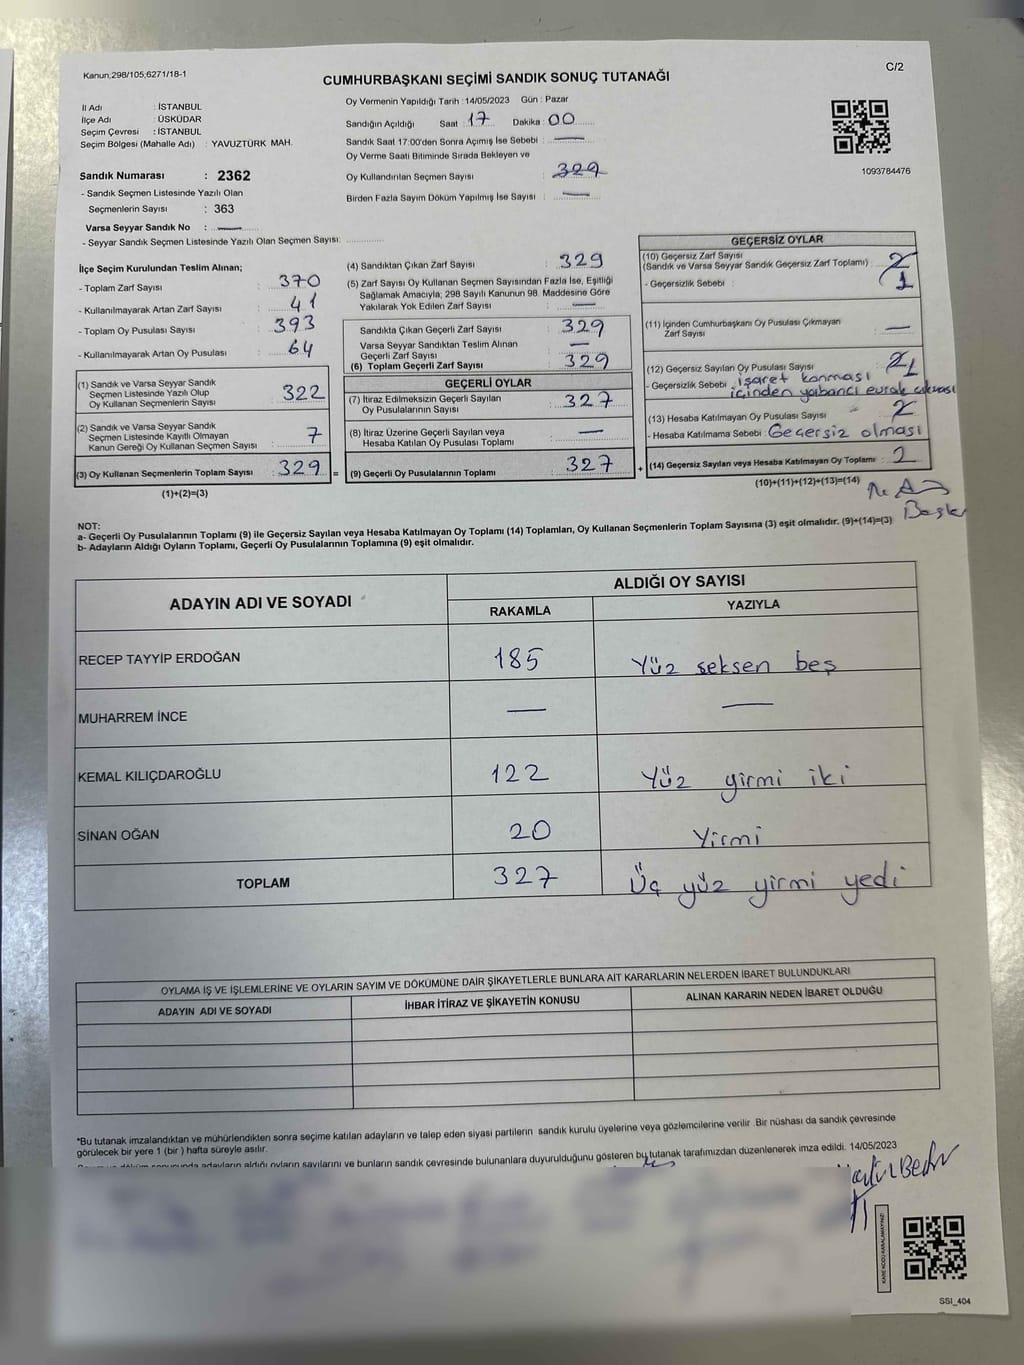 Kanun;298/105;6271/18-1
C/2
CUMHURBAŞKANI SEÇİMİ SANDIK SONUÇ TUTANAĞI
İl Adı : İSTANBUL
İlçe Adı : ÜSKÜDAR
Seçim Çevresi : İSTANBUL
Seçim Bölgesi (Mahalle Adı) : YAVUZTÜRK MAH.
Sandık Numarası : 2362
- Sandık Seçmen Listesinde Yazılı Olan
Seçmenlerin Sayısı : 363
Varsa Seyyar Sandık No : —
- Seyyar Sandık Seçmen Listesinde Yazılı Olan Seçmen Sayısı: ..............
Oy Vermenin Yapıldığı Tarih : 14/05/2023 Gün : Pazar
Sandığın Açıldığı Saat : 17 Dakika : 00
Sandık Saat 17:00'den Sonra Açımış İse Sebebi : —
Oy Verme Saati Bitiminde Sırada Bekleyen ve
Oy Kullandırılan Seçmen Sayısı : 329
Birden Fazla Sayım Döküm Yapılmış İse Sayısı : —
1093784476
İlçe Seçim Kurulundan Teslim Alınan;
- Toplam Zarf Sayısı : 370
- Kullanılmayarak Artan Zarf Sayısı : 41
- Toplam Oy Pusulası Sayısı : 393
- Kullanılmayarak Artan Oy Pusulası : 64
(1) Sandık ve Varsa Seyyar Sandık
Seçmen Listesinde Yazılı Olup
Oy Kullanan Seçmenlerin Sayısı 322
(2) Sandık ve Varsa Seyyar Sandık
Seçmen Listesinde Kayıtlı Olmayan
Kanun Gereği Oy Kullanan Seçmen Sayısı 7
(3) Oy Kullanan Seçmenlerin Toplam Sayısı 329 =
(1)+(2)=(3)
(4) Sandıktan Çıkan Zarf Sayısı : 329
(5) Zarf Sayısı Oy Kullanan Seçmen Sayısından Fazla İse, Eşitliği
Sağlamak Amacıyla; 298 Sayılı Kanunun 98. Maddesine Göre
Yakılarak Yok Edilen Zarf Sayısı : —
Sandıkta Çıkan Geçerli Zarf Sayısı : 329
Varsa Seyyar Sandıktan Teslim Alınan
Geçerli Zarf Sayısı : —
(6) Toplam Geçerli Zarf Sayısı : 329
GEÇERLİ OYLAR
(7) İtiraz Edilmeksizin Geçerli Sayılan
Oy Pusulalarının Sayısı : 327
(8) İtiraz Üzerine Geçerli Sayılan veya
Hesaba Katılan Oy Pusulası Toplamı : —
(9) Geçerli Oy Pusulalarının Toplamı : 327 +
GEÇERSİZ OYLAR
(10) Geçersiz Zarf Sayısı
(Sandık ve Varsa Seyyar Sandık Geçersiz Zarf Toplamı) : 1
- Geçersizlik Sebebi :
(11) İçinden Cumhurbaşkanı Oy Pusulası Çıkmayan
Zarf Sayısı —
(12) Geçersiz Sayılan Oy Pusulası Sayısı : 1
- Geçersizlik Sebebi işaret konması
içinden yabancı evrak çıkması
(13) Hesaba Katılmayan Oy Pusulası Sayısı
- Hesaba Katılmama Sebebi : Geçersiz olması
(14) Geçersiz Sayılan veya Hesaba Katılmayan Oy Toplamı : 2
(10)+(11)+(12)+(13)=(14)
NOT:
a- Geçerli Oy Pusulalarının Toplamı (9) ile Geçersiz Sayılan veya Hesaba Katılmayan Oy Toplamı (14) Toplamları, Oy Kullanan Seçmenlerin Toplam Sayısına (3) eşit olmalıdır. (9)+(14)=(3)
b- Adayların Aldığı Oyların Toplamı, Geçerli Oy Pusulalarının Toplamına (9) eşit olmalıdır.
ADAYIN ADI VE SOYADI
ALDIĞI OY SAYISI
RAKAMLA YAZIYLA
RECEP TAYYİP ERDOĞAN 185 Yüz seksen beş
MUHARREM İNCE — —
KEMAL KILIÇDAROĞLU 122 Yüz yirmi iki
SİNAN OĞAN 20 Yirmi
TOPLAM 327 Üç yüz yirmi yedi
OYLAMA İŞ VE İŞLEMLERİNE VE OYLARIN SAYIM VE DÖKÜMÜNE DAİR ŞİKAYETLERLE BUNLARA AİT KARARLARIN NELERDEN İBARET BULUNDUKLARI
ADAYIN ADI VE SOYADI İHBAR İTİRAZ VE ŞİKAYETİN KONUSU ALINAN KARARIN NEDEN İBARET OLDUĞU
*Bu tutanak imzalandıktan ve mühürlendikten sonra seçime katılan adayların ve talep eden siyasi partilerin sandık kurulu üyelerine veya gözlemcilerine verilir .Bir nüshası da sandık çevresinde
görülecek bir yere 1 (bir ) hafta süreyle asılır.
adayların aldığı oyların sayılarını ve bunların sandık çevresinde bulunanlara duyurulduğunu gösteren bu tutanak tarafımızdan düzenlenerek imza edildi. 14/05/2023
KARE KODU KARALAMAYINIZ!
SSI_404